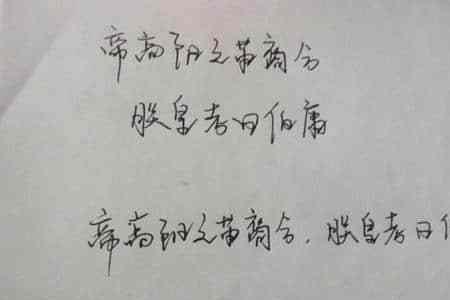 帝高阳之苗裔兮
朕皇考曰伯庸
帝高阳之苗裔兮,朕皇考曰